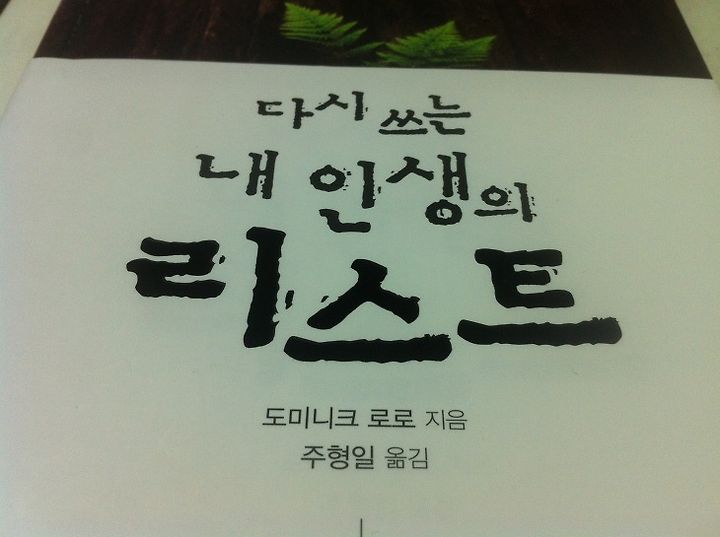 다시 쓰는
내 인생의
리스트
도미니크 로로 지음
주형일 옮김